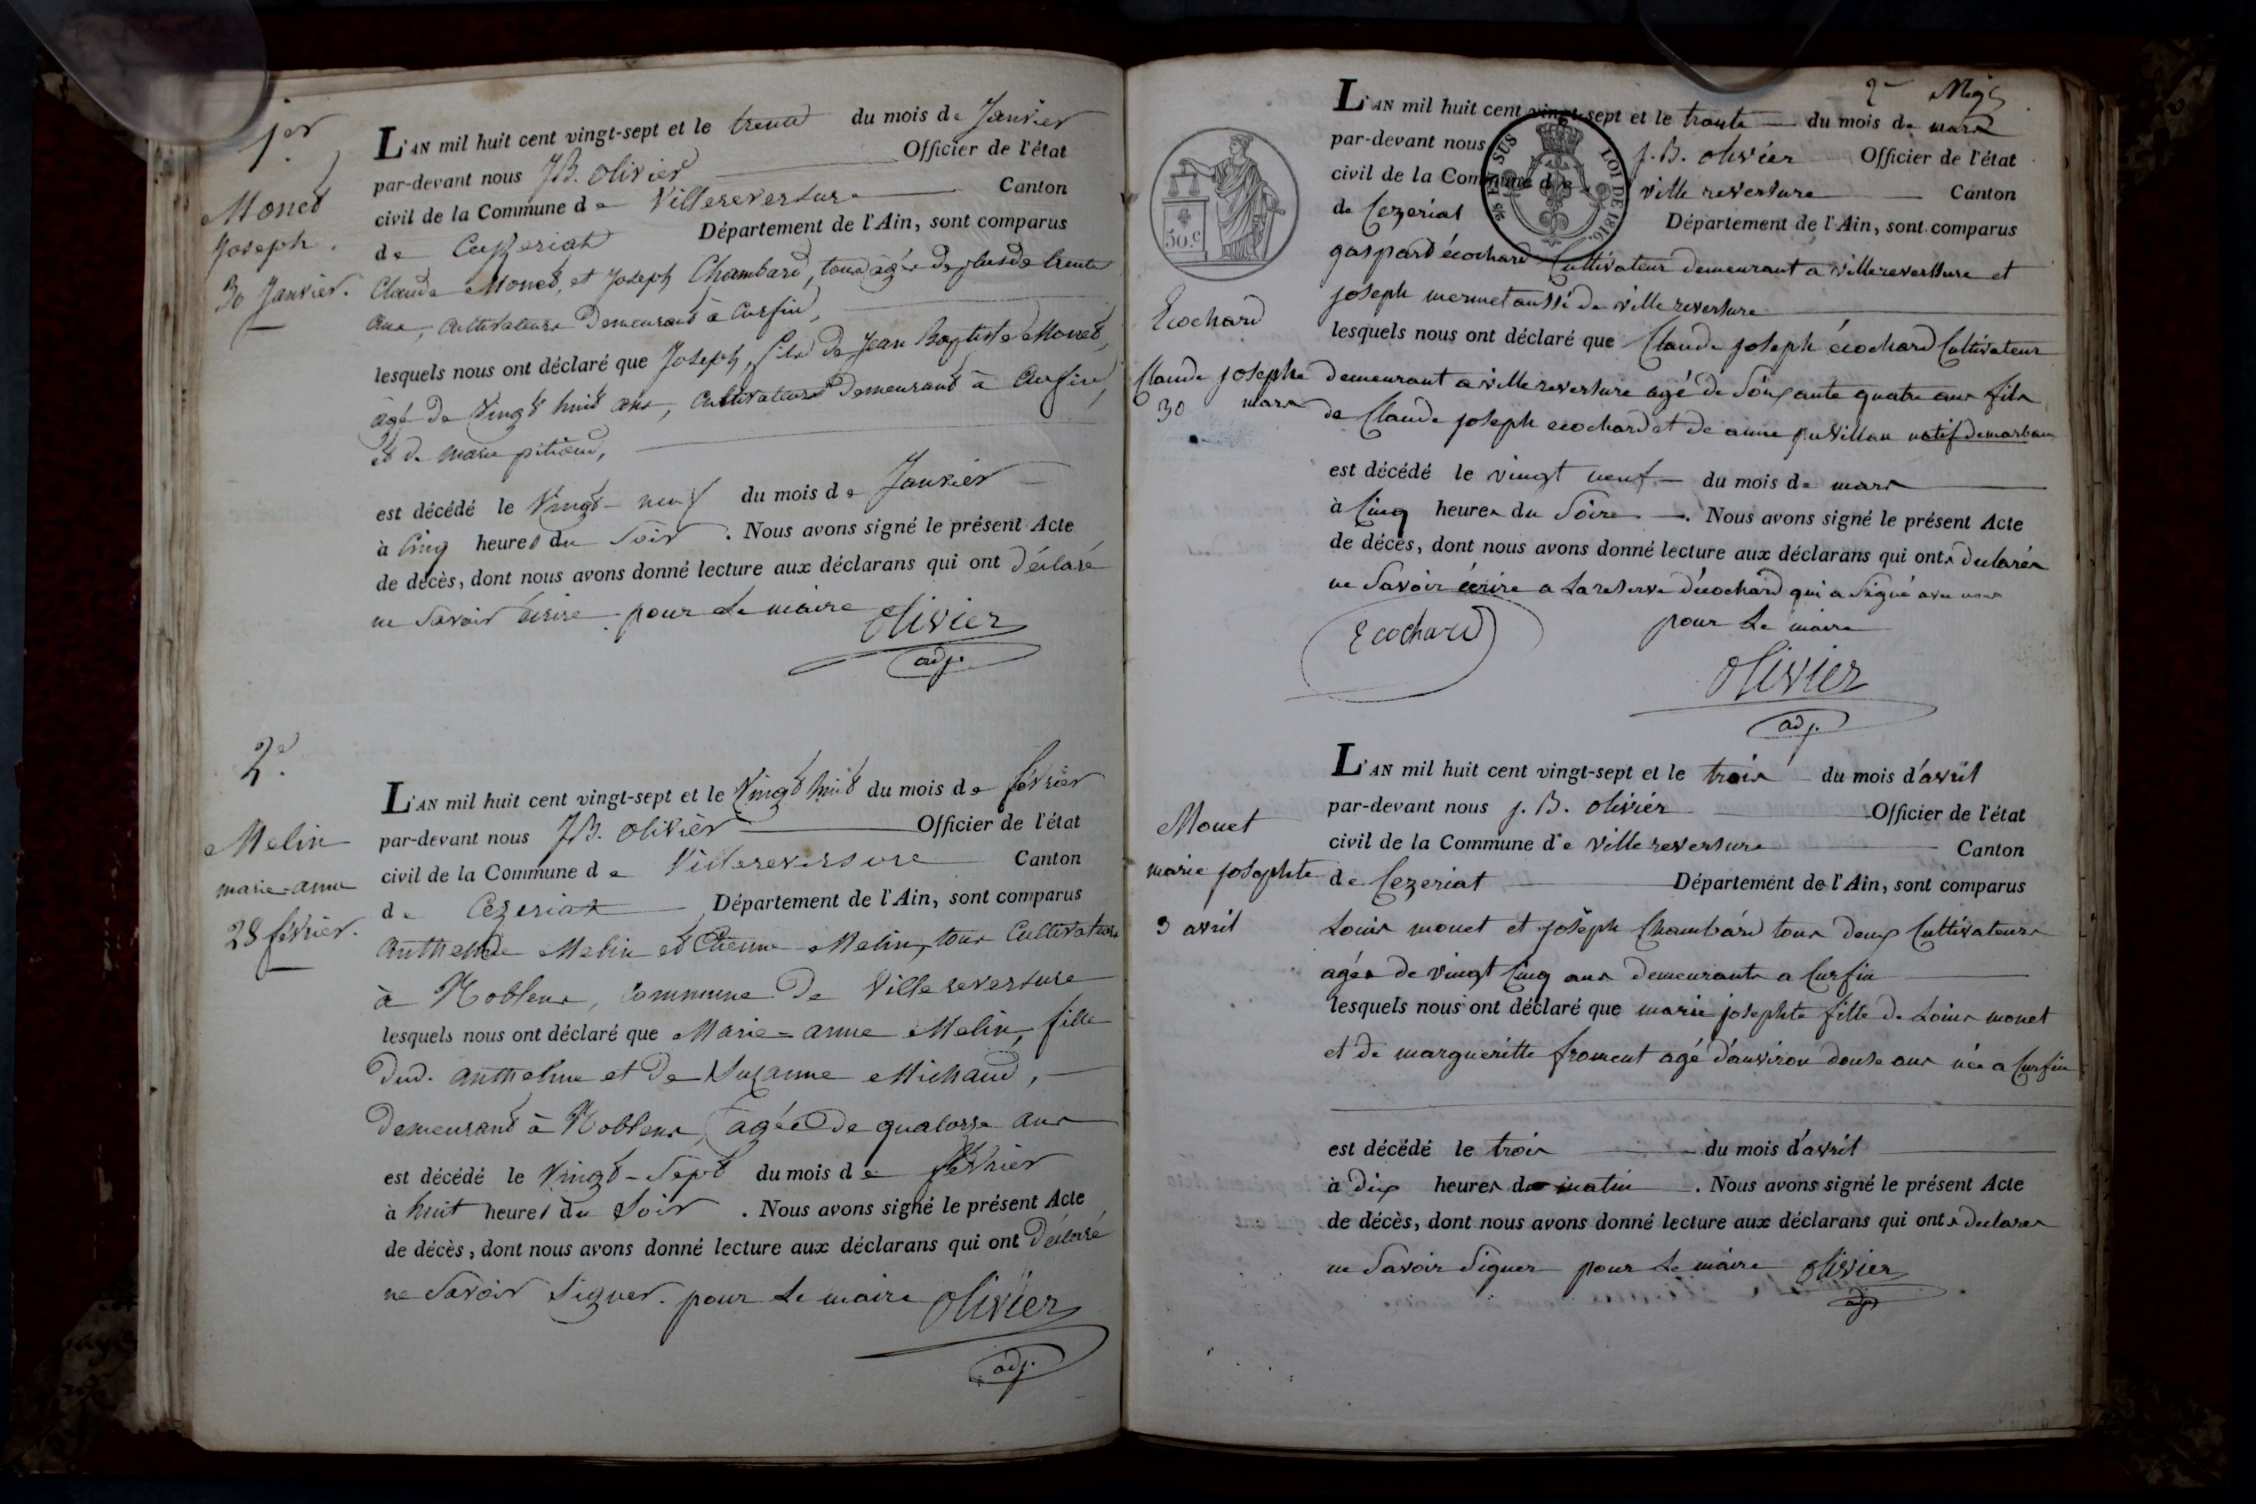 1er
Monet
Joseph.
30 Janvier.
L'AN mil huit cent vingt-sept et le trente du mois de Janvier
par-devant nous J.B. Olivier Officier de l'état
civil de la Commune de Villereversure Canton
de Ceyzeriat Département de l'Ain, sont comparus
Claude Monet, et Joseph Chambard, tous agés de plus de trente
ans, cultivateurs demeurant à Curfin,
lesquels nous ont déclaré que Joseph, fils de Jean Baptiste Monet,
âgé de Vingt huit ans, cultivateur demeurant à Curfin,
et de marie
est décédé le Vingt-neuf du mois de Janvier
à Cinq heures du Soir. Nous avons signé le présent Acte
de décès, dont nous avons donné lecture aux déclarans qui ont déclaré
ne Savoir écrire. pour Le maire Olivier
adj.
2e.
Melin
marie-anne
28 février.
L'AN mil huit cent vingt-sept et le Vingt huit du mois de février
par-devant nous J.B. Olivier Officier de l'état
civil de la Commune de Villereversure Canton
de Cezeriat Département de l'Ain, sont comparus
Anthelme Melin et Etienne Melin, tous Cultivateurs
à Noblens, Commune de Villereversure
lesquels nous ont déclaré que Marie-anne Melin, fille
dud. anthelme et de Suzanne Michaud,
demeurant à Noblens, agée de quatorze ans
est décédé le Vingt-Sept du mois de février
à huit heures du Soir. Nous avons signé le présent Acte
de décès, dont nous avons donné lecture aux déclarans qui ont déclaré
ne Savoir Signer. pour Le maire Olivier
adj.
2
50.c
EN SUS
LOI DE 1816.
Ecochard
Claude josephe
30 mars
L'AN mil huit cent vingt-sept et le trante du mois de mars
par-devant nous j. B. olivier Officier de l'état
civil de la Commune de ville reversure Canton
de Cezeriat Département de l'Ain, sont comparus
gaspard écochard Cultivateur demeurant a villereverssure et
joseph mermet aussi de ville reversure
lesquels nous ont déclaré que Claude joseph écochard Cultivateur
demeurant a ville reversure agé de Soixante quatre ans fils
de Claude joseph ecochard et de anne natif de
est décédé le vingt neuf du mois de mars
à Cinq heures du Soire. Nous avons signé le présent Acte
de décès, dont nous avons donné lecture aux déclarans qui onts declarés
ne Savoir écrire a La reserve d'écochard qui a Signé avec nous
Ecochard
pour Le maire
Olivier
adj.
Monet
marie josephte
3 avril
L'AN mil huit cent vingt-sept et le trois du mois d'avril
par-devant nous j. B. olivier Officier de l'état
civil de la Commune de ville reversure Canton
de Cezeriat Département de l'Ain, sont comparus
Louis monet et joseph Chambard tous deux Cultivateurs
agés de vingt Cinq ans demeurants a Curfin
lesquels nous ont déclaré que marie josephte fille de Louis monet
et de margueritte froment agé d'anviron douse ans née a Curfin
est décédé le trois du mois d'avril
à dix heures du matin. Nous avons signé le présent Acte
de décès, dont nous avons donné lecture aux déclarans qui onts declares
ne Savoir Signer pour Le maire Olivier
adj